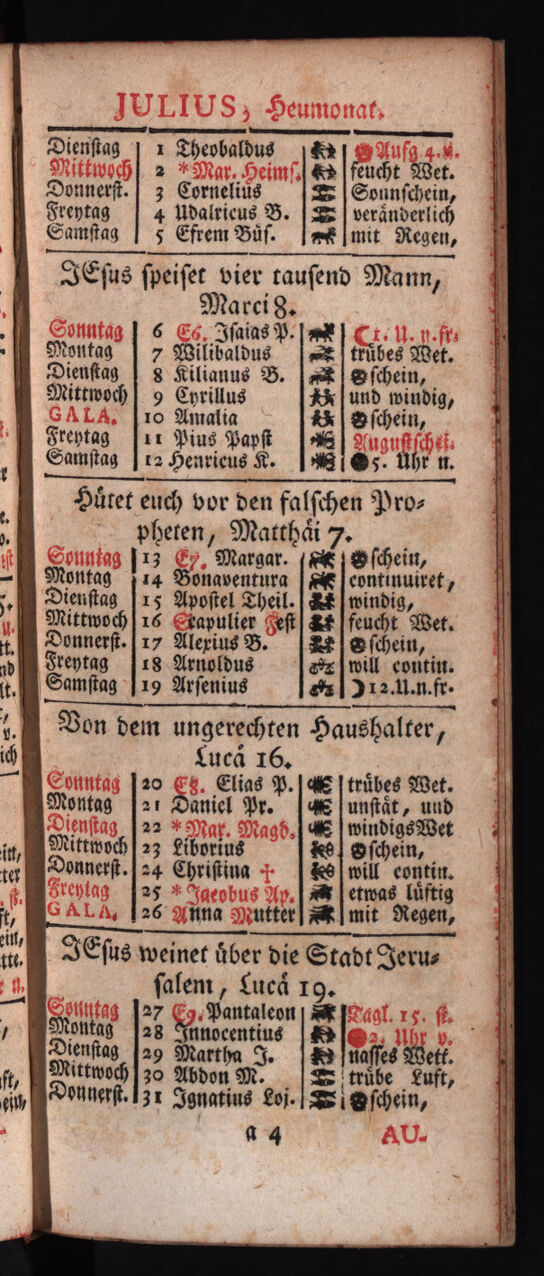 JULIUS, Heumonat.
Dienstag 1 Theobaldus Aufg 4. U.
Mittwoch 2 *Mar. Heims. feucht Wet.
Donnerst. 3 Cornelius Sonnschein,
Freytag 4 Udalricus B. veränderlich
Samstag 5 Efrem Büs. mit Regen,
JEsus speiset vier tausend Mann,
Marci 8.
Sonntag 6 E6. Isaias P. 1. U. n. fr.
Montag 7 Wilibaldus trübes Wet.
Dienstag 8 Kilianus B. schein,
Mittwoch 9 Cyrillus und windig,
GALA. 10 Amalia schein,
Freytag 11 Pius Papst Augustschei.
Samstag 12 Henricus K. 5. Uhr n.
Hütet euch vor den falschen Pro-
pheten, Matthäi 7.
Sonntag 13 E7. Margar. schein,
Montag 14 Bonaventura continuiret,
Dienstag 15 Apostel Theil. windig,
Mittwoch 16 Scapulier Fest feucht Wet.
Donnerst. 17 Alexius B. schein,
Freytag 18 Arnoldus will contin.
Samstag 19 Arsenius 12. U. n. fr.
Von dem ungerechten Haushalter,
Lucä 16.
Sonntag 20 E8. Elias P. trübes Wet.
Montag 21 Daniel Pr. unstät, und
Dienstag 22 *Mar. Magd. windigs Wet
Mittwoch 23 Liborius schein,
Donnerst. 24 Christina + will contin.
Freytag 25 *Jacobus Ap. etwas lüftig
GALA. 26 Anna Mutter mit Regen,
JEsus weinet über die Stadt Jeru-
salem, Lucä 19.
Sonntag 27 E9. Pantaleon Tagl. 15. st.
Montag 28 Innocentius 2. Uhr v.
Dienstag 29 Martha J. nasses Wett.
Mittwoch 30 Abdon M. trübe Luft,
Donnerst. 31 Ignatius Loj. schein,
a 4 AU-